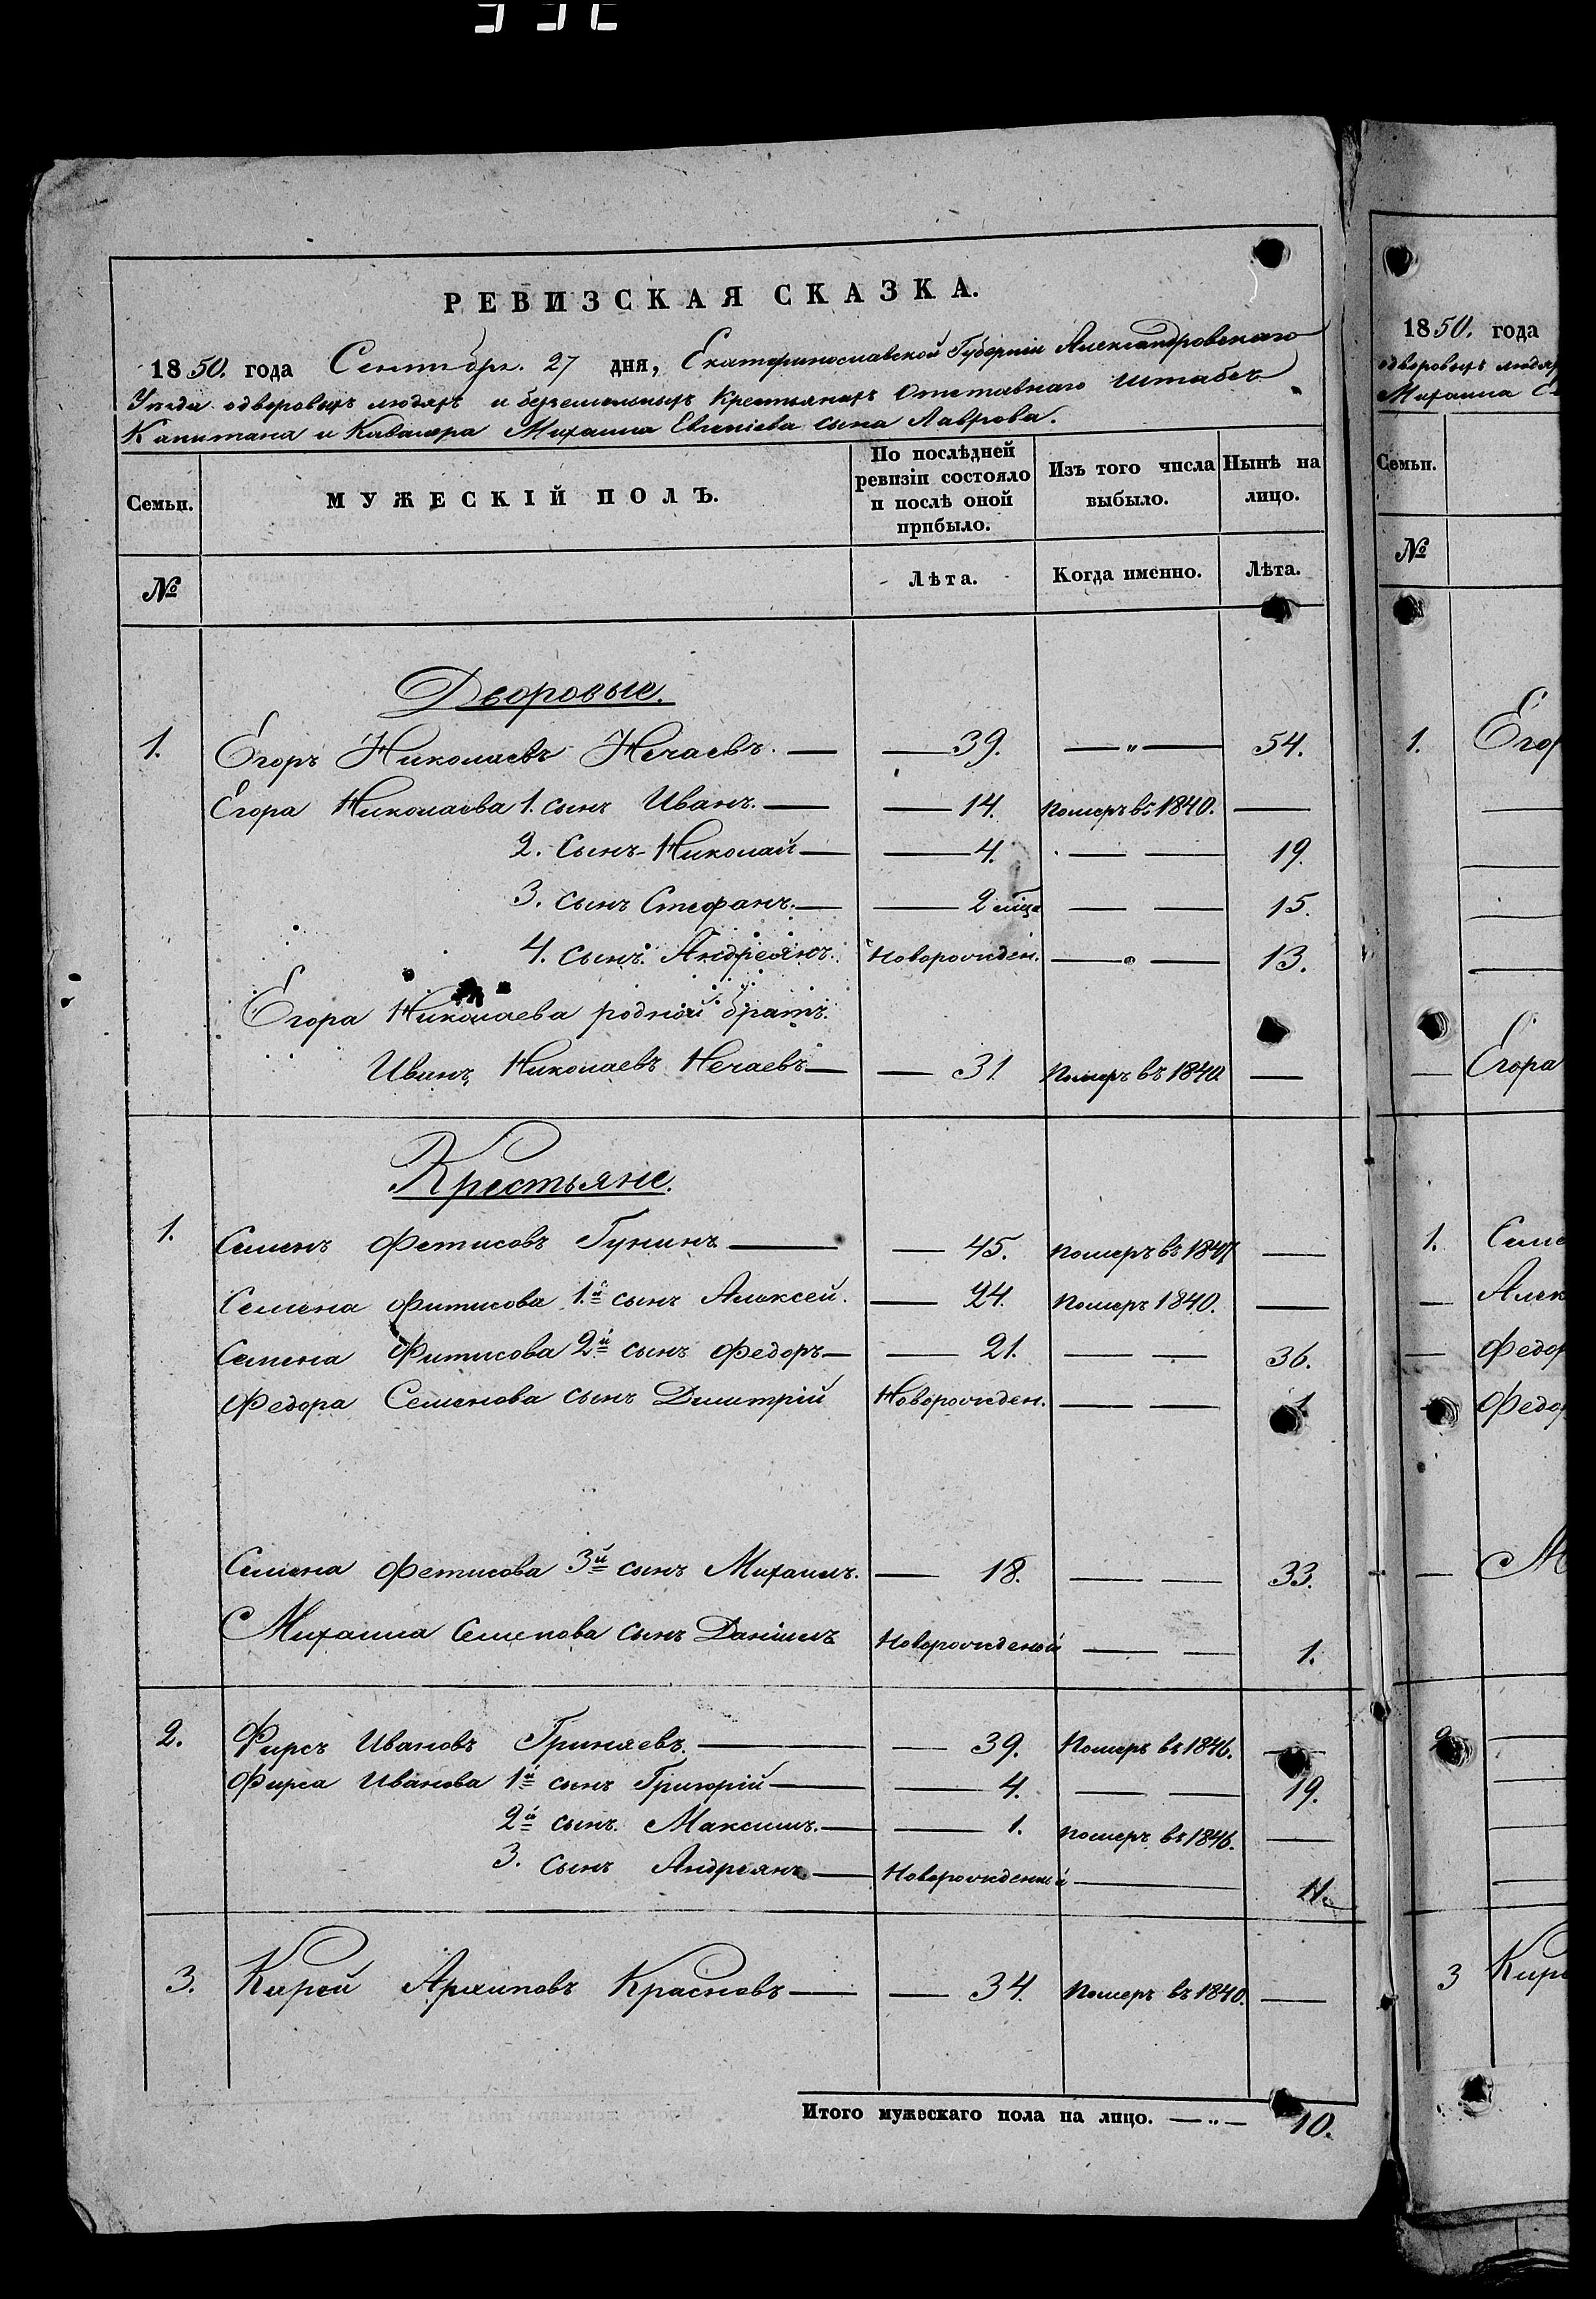 РЕВИЗСКАЯ СКАЗКА.
1850. года Сентябрь. 27 дня, Екатеринославской Губерніи Александровскаго
Уезда о дворовыхъ людяхъ и безземельныхъ Крестьянахъ Отставнаго Штабсъ
Капитана и Кавалера Михаила Евгеніева сына Лаврова.
Семьи.
МУЖЕСКІЙ ПОЛЪ.
По послѣдней ревизіи состояло и послѣ оной прибыло.
Изъ того числа выбыло.
Нынѣ на лицо.
№
Лѣта.
Когда именно.
Лѣта.
Дворовые.
1. Егоръ Николаевъ Нечаевъ. — — 39. — " — 54.
Егора Николаева 1. сынъ Иванъ. — — 14. померъ въ 1840. —
2. Сынъ Николай — — 4. — — 19.
3. сынъ Стефанъ. — — 2 мѣца — — 15.
4. сынъ Андреянъ. Новорожден. — — 13.
Егора Николаева родной братъ.
Иванъ Николаевъ Нечаевъ — — 31 Померъ въ 1840 —
Крестьяне.
1. Семенъ Фетисовъ Гунинъ — — 45. померъ въ 1847 —
Семена Фитисова 1.й сынъ Алексей. — 24. Померъ 1840. —
Семена Фитисова 2й сынъ Федоръ — — 21. — — 36.
Федора Семенова сынъ Дмитрій Новорожден. — — 1
Семена Фетисова 3й сынъ Михаилъ. — 18. — — 33.
Михаила Семенова сынъ Даніилъ Новорожденой — — 1.
2. Фирсъ Ивановъ Гриняевъ. — — 39. Померъ въ 1846. —
Фирса Иванова 1й сынъ Григорій — — 4. — — 19.
2й сынъ Максимъ. — — 1. померъ въ 1846. —
3. Сынъ Андреянъ — Новорожденный — 11.
3. Кирей Архиповъ Красновъ — — 34. Померъ въ 1840. —
Итого мужескаго пола на лицо. — „ — 10.
1850. года
одворовыхъ людях
Михаила
Семьи.
№
1. Егор
Егора
1. Семе
Алек
Федор
Федор
М
2
3 Кире